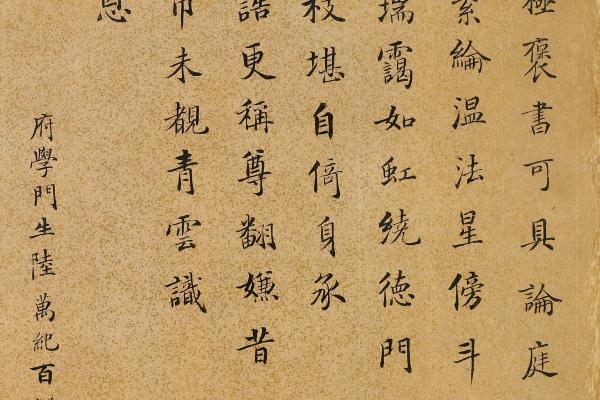 極褒書可具論庭
綸温法星傍斗
瑞靄如虹繞德門
枝堪自倚身承
誥更稱尊翻嫌昔
未覩青雲識
恩
府學門生陸萬紀百